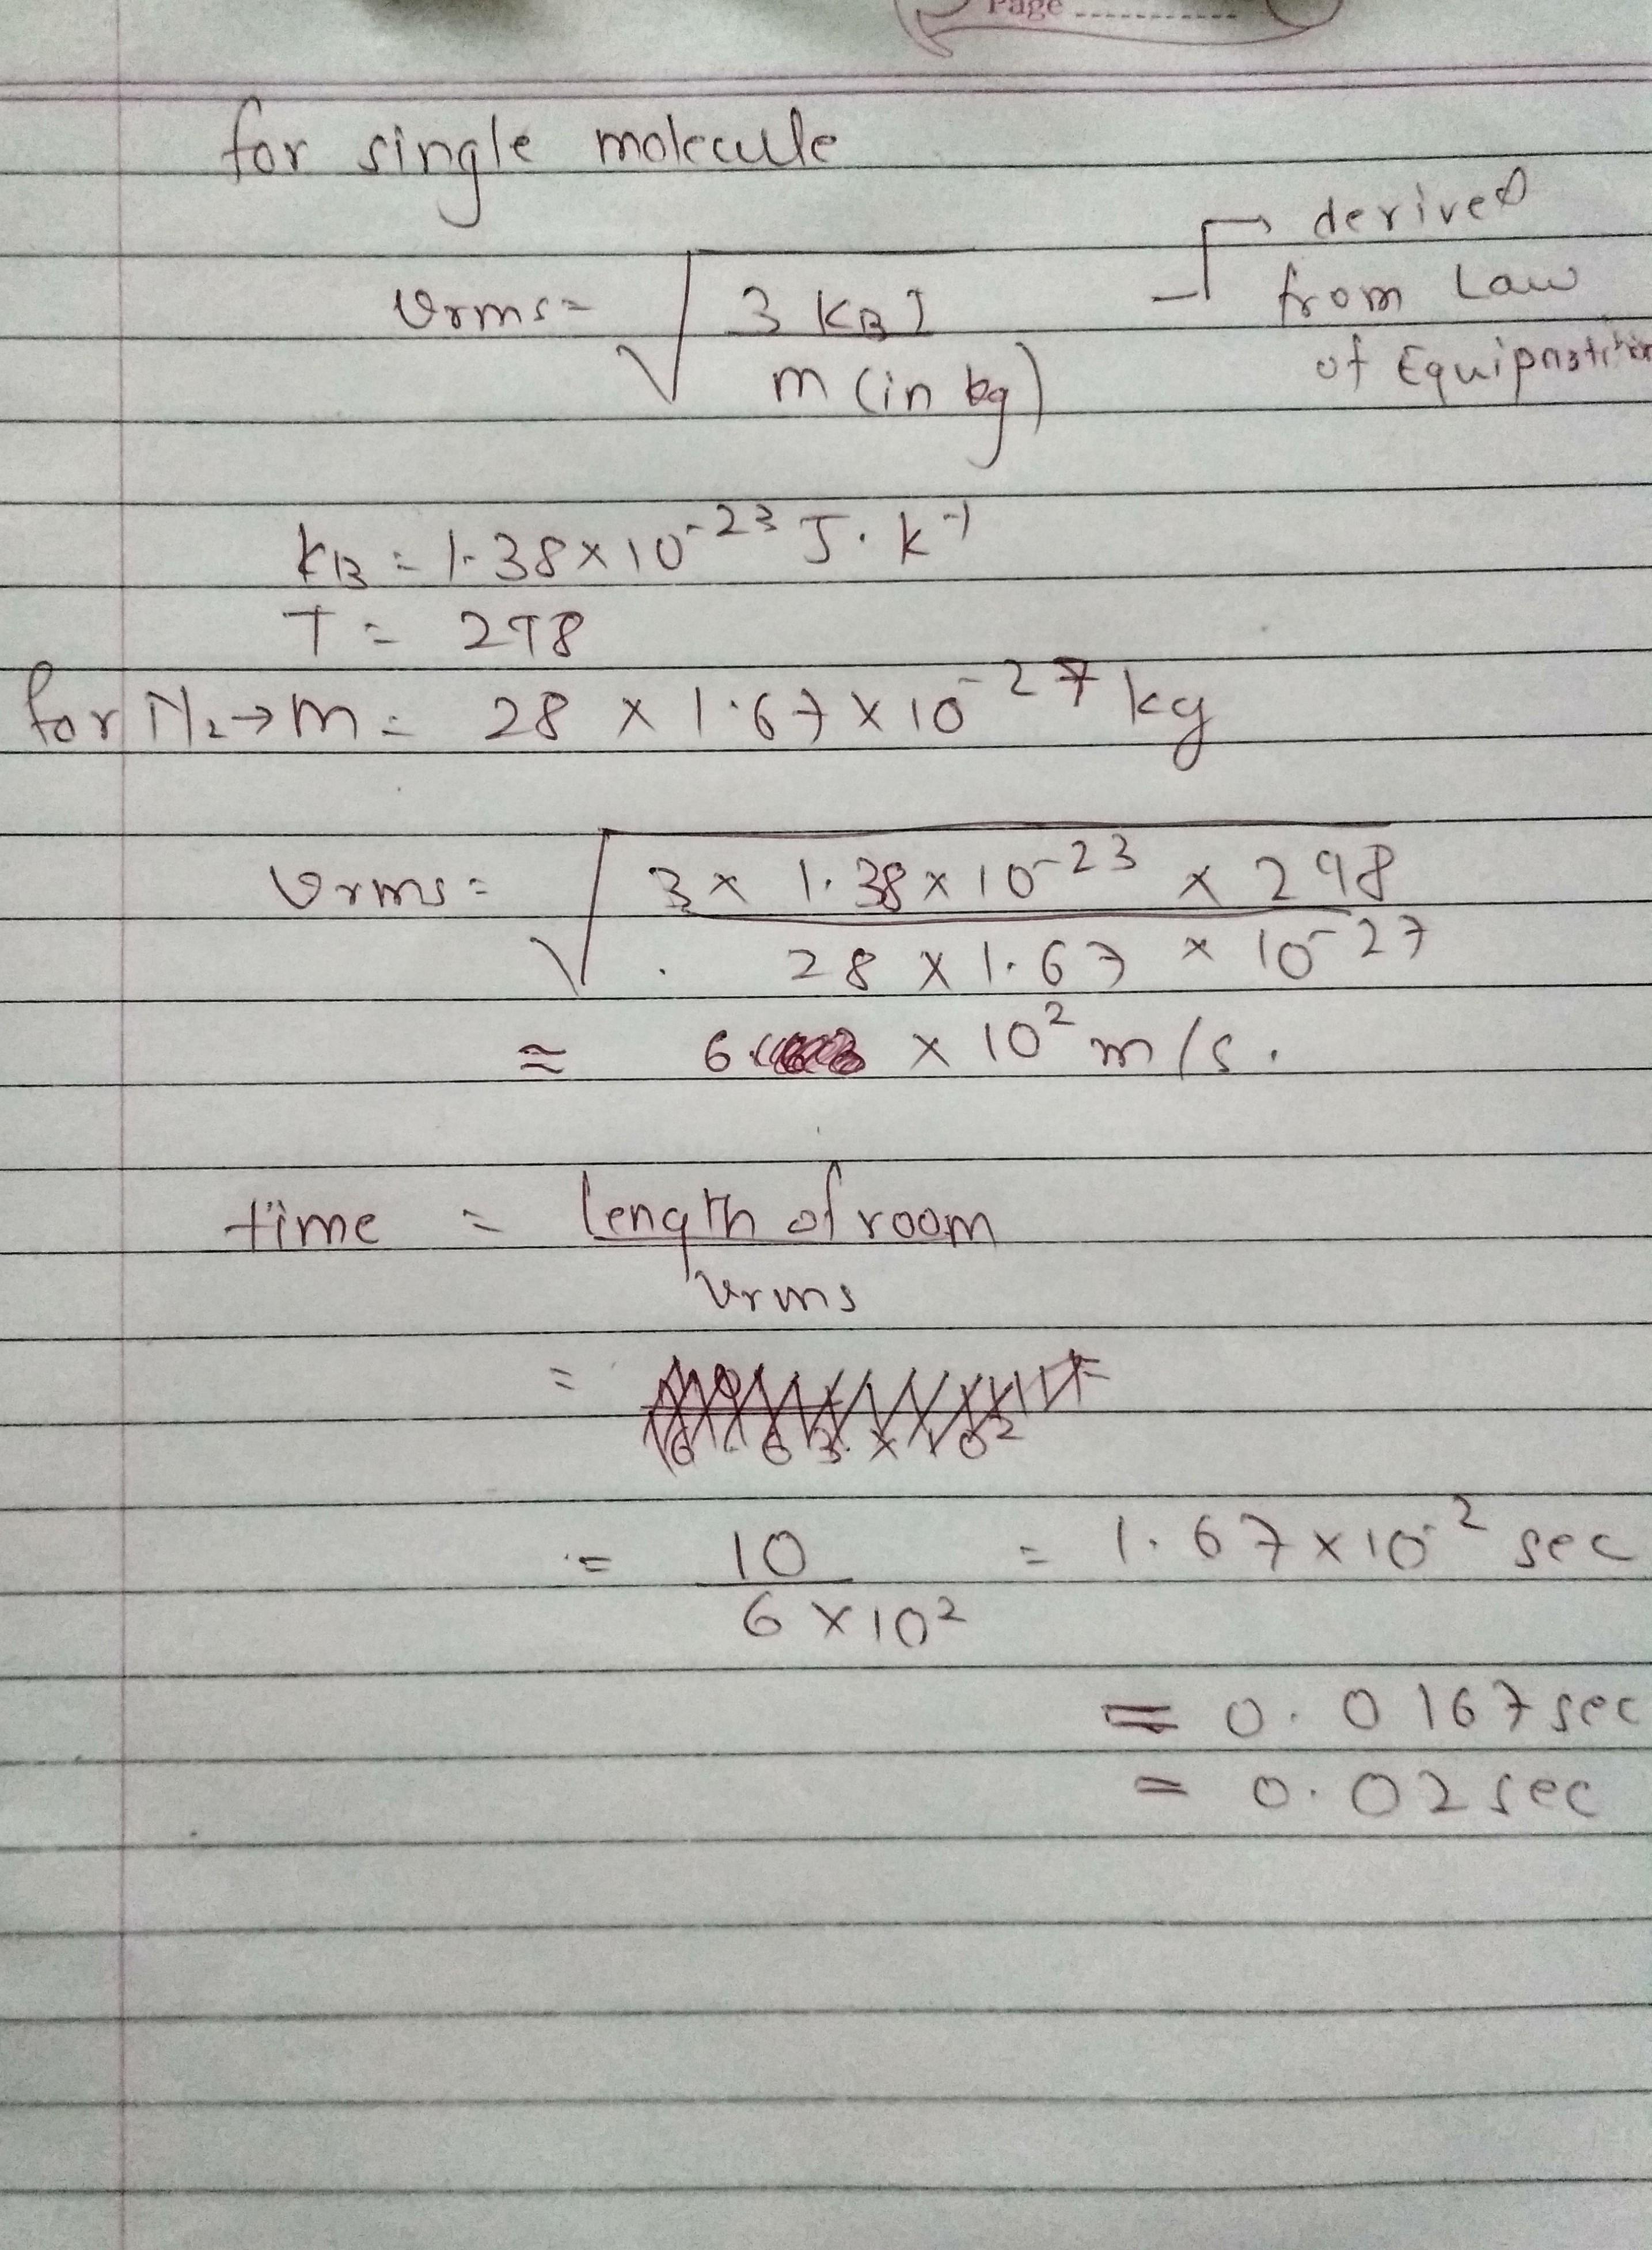 Page ------------
for single molecule
Vrms = √ 3 KB T / m (in kg) → derived
from Law
of Equipartition
KB = 1.38 × 10^-23 J. K^-1
T = 298
for N2 → m = 28 × 1.67 × 10^-27 kg
Vrms = √ 3 × 1.38 × 10^-23 × 298 / 28 × 1.67 × 10^-27
≈ 6 × 10^2 m/s.
time = length of room / Vrms
=
= 10 / 6 × 10^2 = 1.67 × 10^-2 sec
= 0.0167 sec
= 0.02 sec